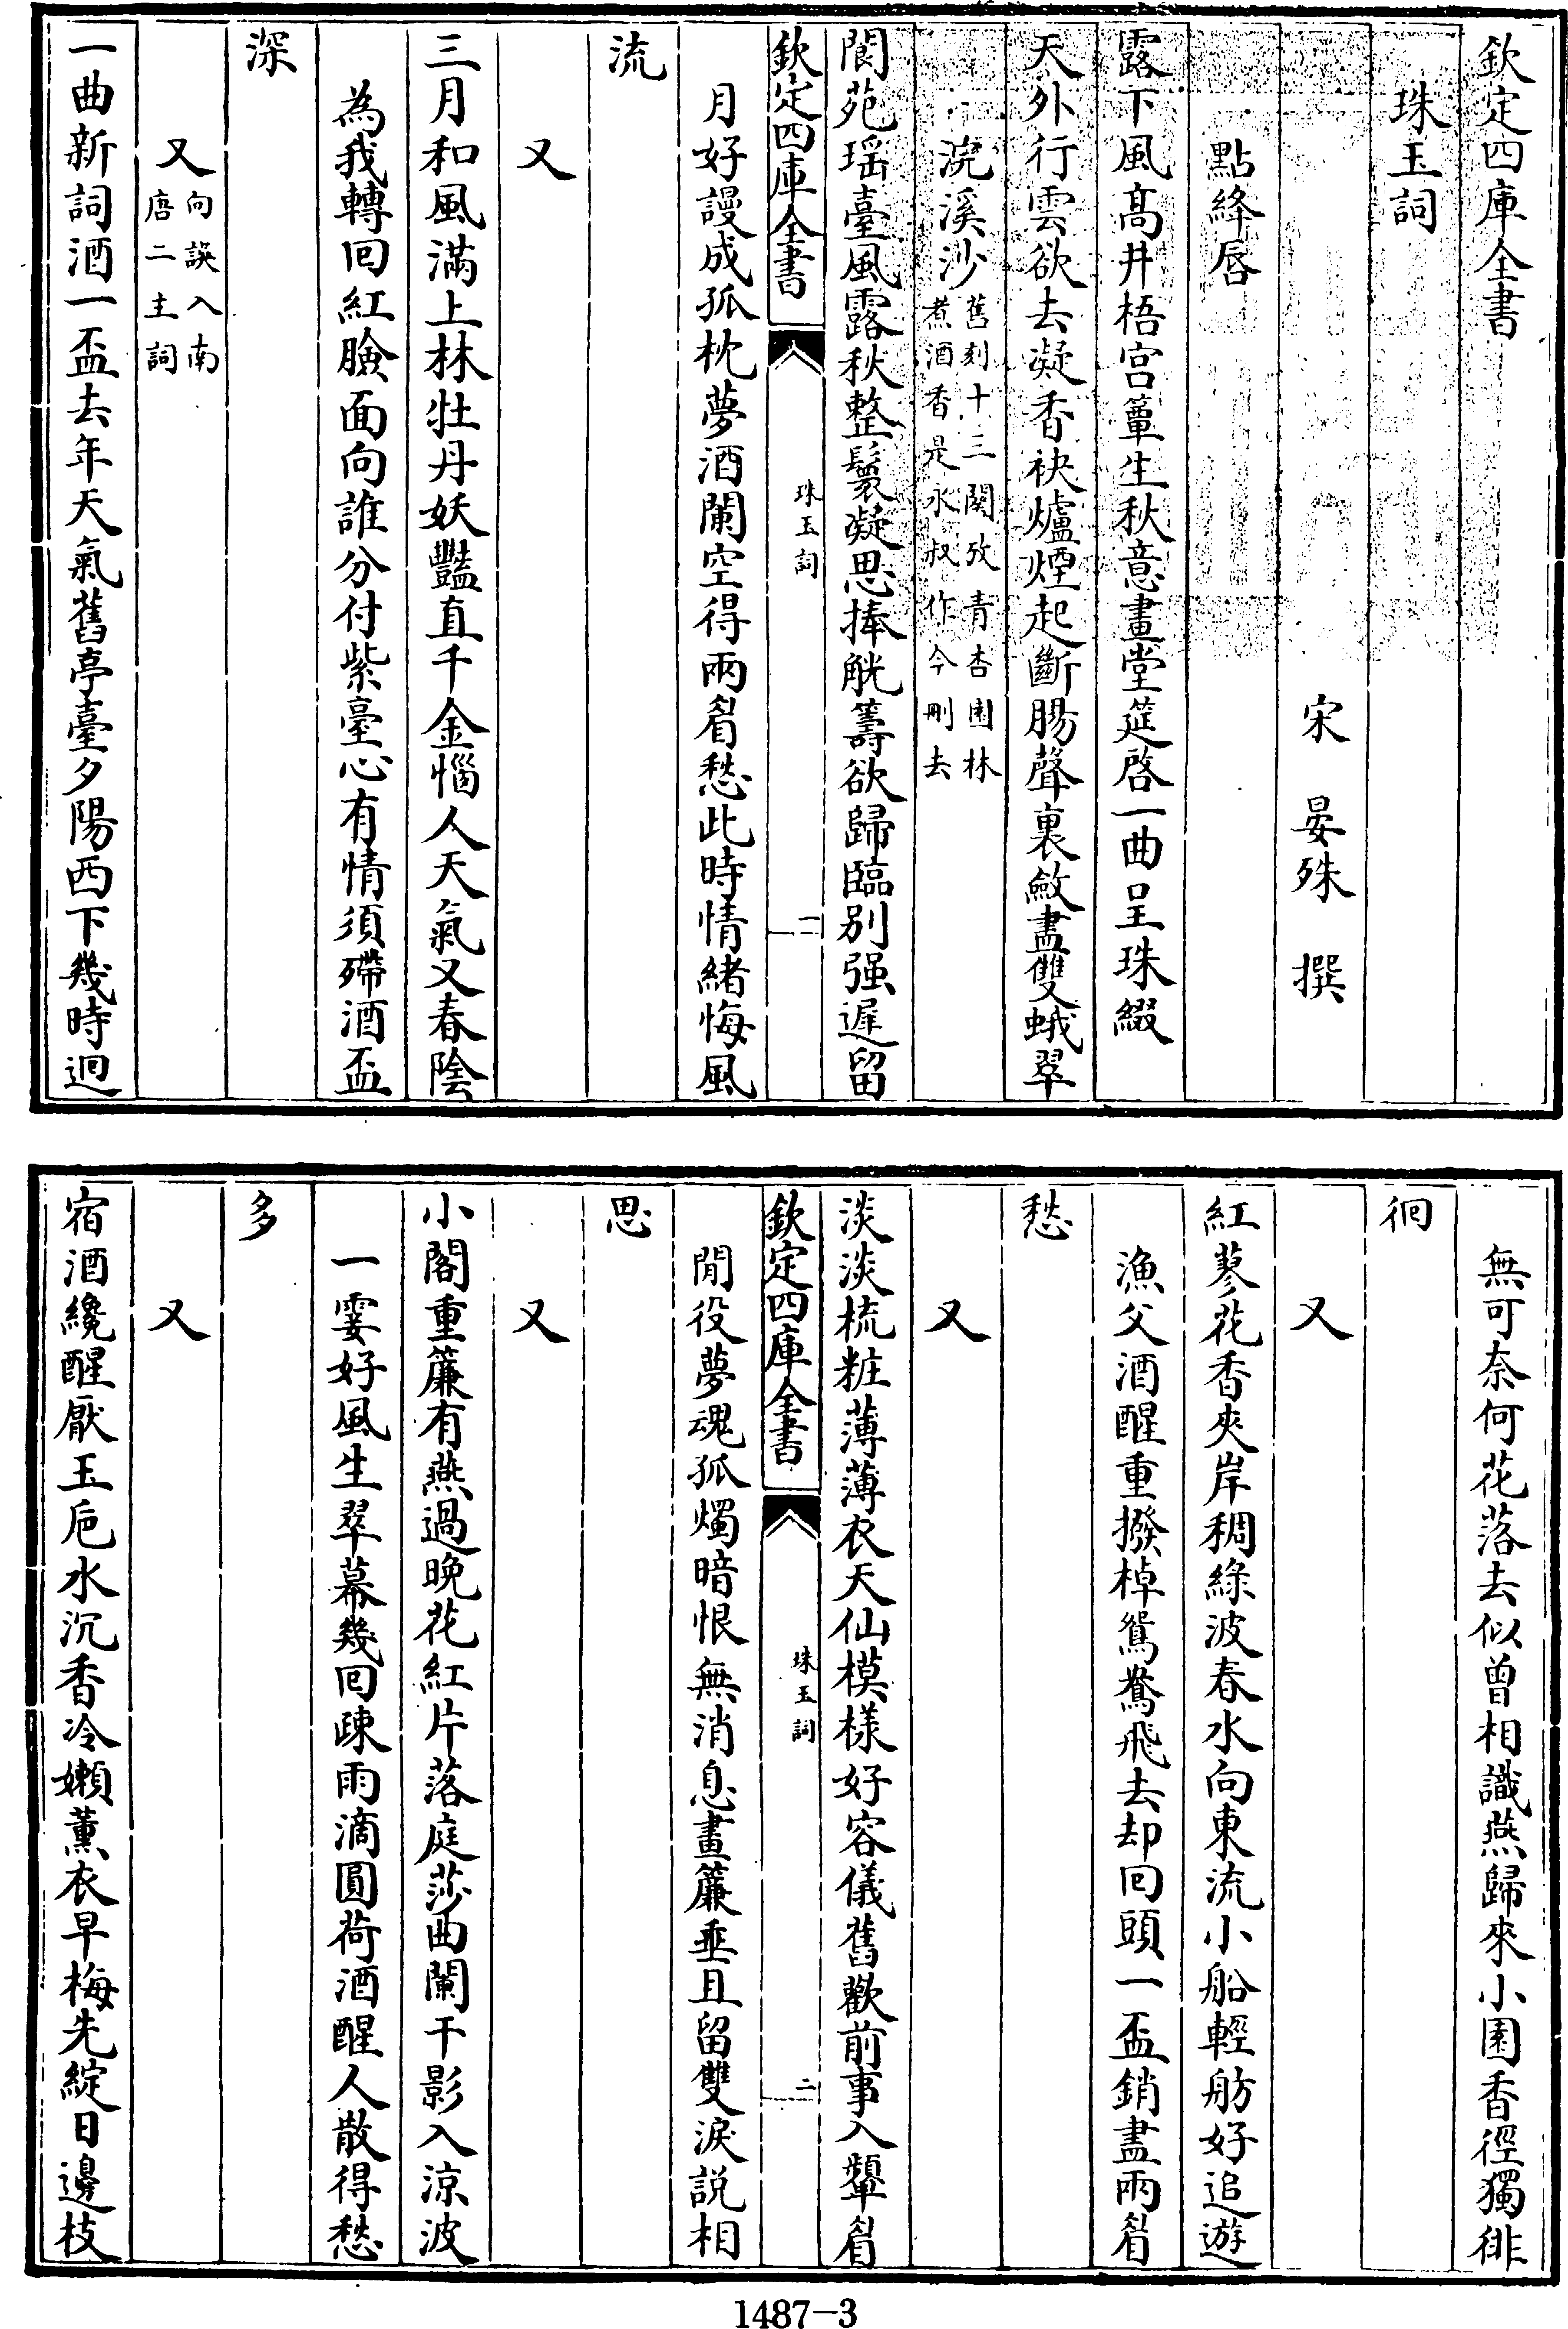 欽定四庫全書
珠玉詞
宋 晏殊 撰
點絳唇
露下風高井梧宫簟生秋意畫堂筵啓一曲呈珠綴
天外行雲欲去凝香袂爐煙起斷腸聲裏斂盡雙蛾翠
浣溪沙舊刻十三闋攷青杏園林
煮酒香是永叔作今刪去
閬苑瑶臺風露秋整鬟凝思捧觥籌欲歸臨别强遲留
欽定四庫全書
珠玉詞
一
月好謾成孤枕夢酒闌空得兩眉愁此時情緒悔風
流
又
三月和風滿上林牡丹妖豔直千金惱人天氣又春陰
為我轉回紅臉面向誰分付紫臺心有情須殢酒盃
深
又向誤入南
唐二主詞
一曲新詞酒一盃去年天氣舊亭臺夕陽西下幾時迴
無可奈何花落去似曾相識燕歸來小園香徑獨徘
徊
又
紅蓼花香夾岸稠綠波春水向東流小船輕舫好追遊
漁父酒醒重撥棹鴛鴦飛去却回頭一盃銷盡兩眉
愁
又
淡淡梳粧薄薄衣天仙模樣好容儀舊歡前事入顰眉
欽定四庫全書
珠玉詞
二
閒役夢魂孤燭暗恨無消息畫簾垂且留雙淚説相
思
又
小閣重簾有燕過晚花紅片落庭莎曲闌干影入涼波
一霎好風生翠幕幾回疎雨滴圓荷酒醒人散得愁
多
又
宿酒纔醒厭玉巵水沉香冷嬾薰衣早梅先綻日邊枝
1487-3